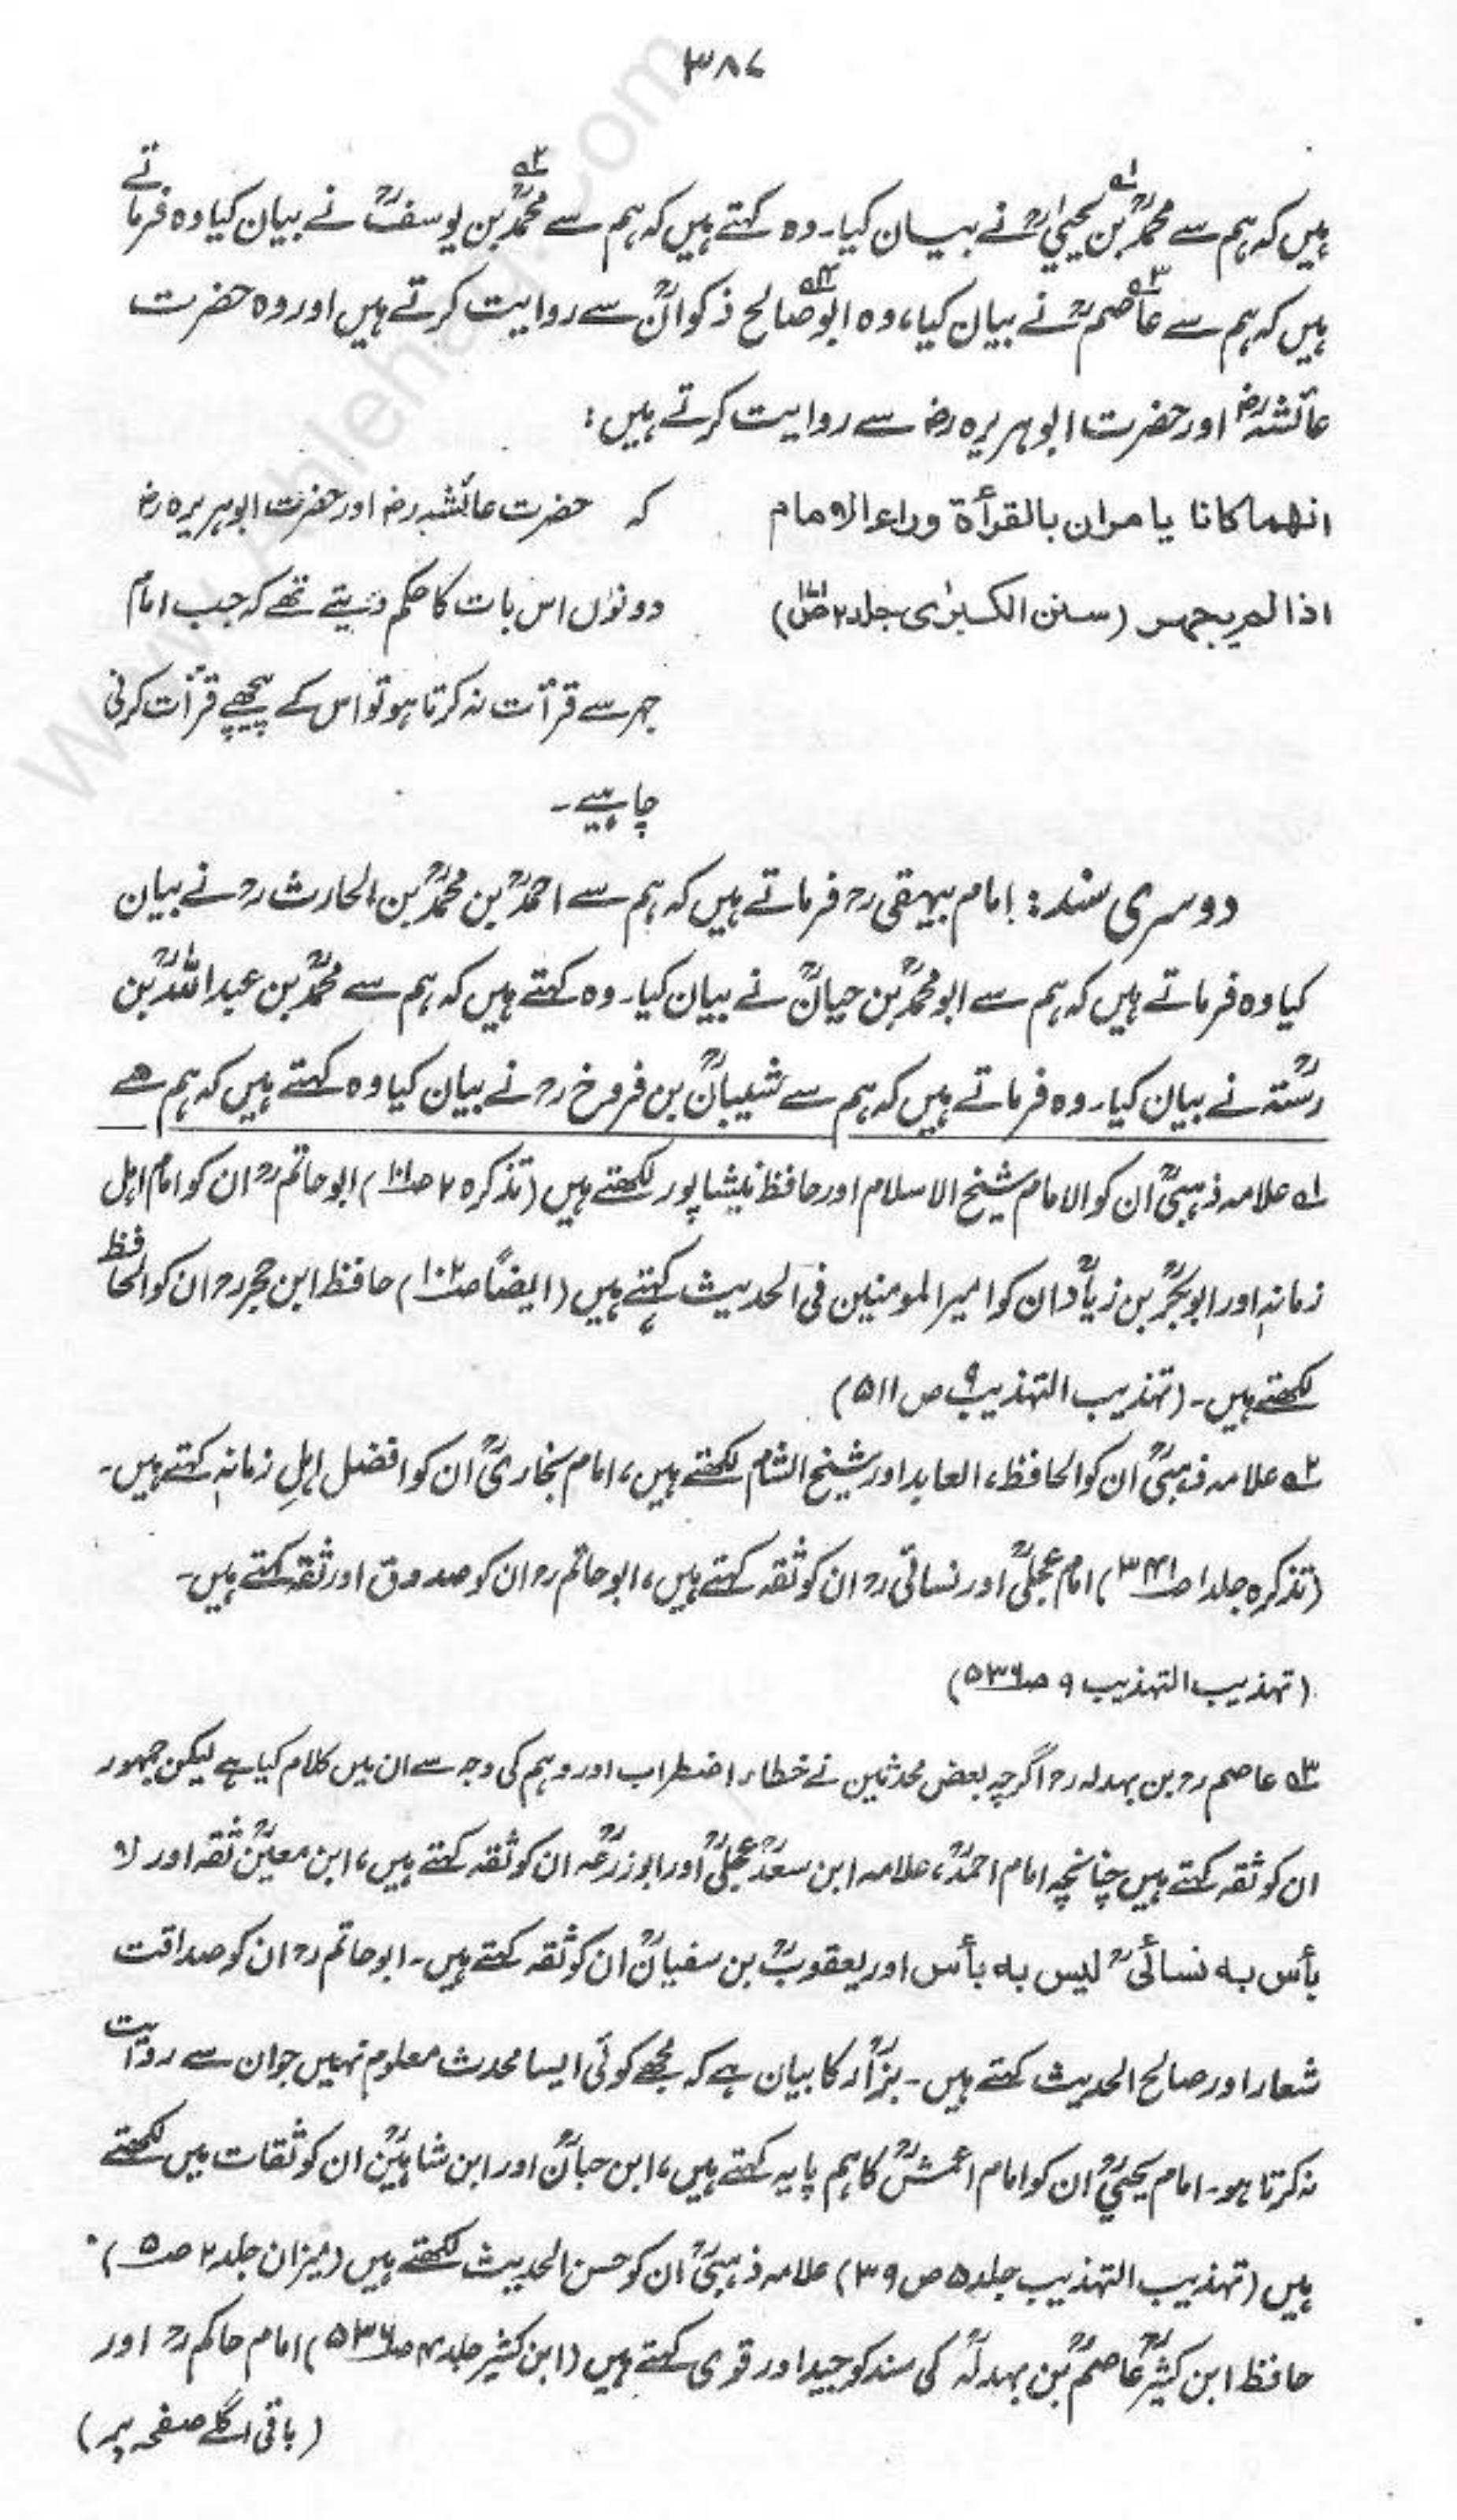 ۳۸۷
ہیں کہ ہم سے محمدؒ بن یحییٰؒ لہ نے بیان کیا۔ وہ کہتے ہیں کہ ہم سے محمدؒ بن یوسفؒ ٢ہ نے بیان کیا وہ فرماتے
ہیں کہ ہم سے عاصمؒ ٣ہ نے بیان کیا، وہ ابو صالح ٤ہ ذکوانؒ سے روایت کرتے ہیں اور وہ حضرت
عائشہؓ اور حضرت ابوہریرہ رض سے روایت کرتے ہیں:
انھما کانا یامران بالقرأة وراء الامام کہ حضرت عائشہ رض اور حضرت ابوہریرہ رض
اذا لم یجھر (سنن الکبرٰی جلد ۲ ص) دونوں اس بات کا حکم دیتے تھے کہ جب امام
جہر سے قرأت نہ کرتا ہو تو اس کے پیچھے قرأت کرنی
چاہیے۔
دوسری سند: امام بیہقی رح فرماتے ہیں کہ ہم سے احمدؒ بن محمدؒ بن الحارث رح نے بیان
کیا وہ فرماتے ہیں کہ ہم سے ابو محمدؒ بن حیانؒ نے بیان کیا۔ وہ کہتے ہیں کہ ہم سے محمدؒ بن عبداللہؒ بن
رستہؒ نے بیان کیا۔ وہ فرماتے ہیں کہ ہم سے شیبانؒ بن فروخ رح نے بیان کیا وہ کہتے ہیں کہ ہم سے
لہ علامہ ذہبیؒ ان کو الامام شیخ الاسلام اور حافظ نیشاپور لکھتے ہیں (تذکرہ ۲ ص۱۰۱) ابو حاتم رح ان کو امام اہل
زمانہ اور ابوبکرؒ بن زیادؒ ان کو امیر المومنین فی الحدیث کہتے ہیں (ایضاً ص۱۰۲) حافظ ابن حجر رح ان کو الحافظ
لکھتے ہیں۔ (تہذیب التہذیب ۹ ص ۵۱۱)
٢ہ علامہ ذہبیؒ ان کو الحافظ، العابد اور شیخ الشام لکھتے ہیں، امام بخاریؒ ان کو افضل اہلِ زمانہ کہتے ہیں۔
(تذکرہ جلد ۱ ص۳۴۱) امام عجلیؒ اور نسائی رح ان کو ثقہ کہتے ہیں، ابو حاتم رح ان کو صدوق اور ثقہ کہتے ہیں۔
(تہذیب التہذیب ۹ ص۵۳۶)
٣ہ عاصم رح بن بہدلہ رح اگرچہ بعض محدثین نے خطاء، اضطراب اور وہم کی وجہ سے ان میں کلام کیا ہے لیکن جمہور
ان کو ثقہ کہتے ہیں چنانچہ امام احمدؒ، علامہ ابن سعدؒ عجلیؒ اور ابو زرعہؒ ان کو ثقہ کہتے ہیں، ابن معینؒ ثقہ اور لا
بأس به نسائیؒ لیس به بأس اور یعقوبؒ بن سفیانؒ ان کو ثقہ کہتے ہیں۔ ابو حاتم رح ان کو صداقت
شعار اور صالح الحدیث کہتے ہیں۔ بزارؒ کا بیان ہے کہ مجھے کوئی ایسا محدث معلوم نہیں جو ان سے روایت
نہ کرتا ہو۔ امام یحییٰؒ ان کو امام اعمشؒ کا ہم پایہ کہتے ہیں، ابن حبانؒ اور ابن شاہینؒ ان کو ثقات میں لکھتے
ہیں (تہذیب التہذیب جلد ۵ ص ۳۹) علامہ ذہبیؒ ان کو حسن الحدیث لکھتے ہیں (میزان جلد ۲ ص۵)
حافظ ابن کثیرؒ عاصمؒ بن بہدلہؒ کی سند کو جید اور قوی کہتے ہیں (ابن کثیر جلد ۴ ص۵۳۶) امام حاکم رح اور
(باقی اگلے صفحہ پر)
www.Ahlehaq.com